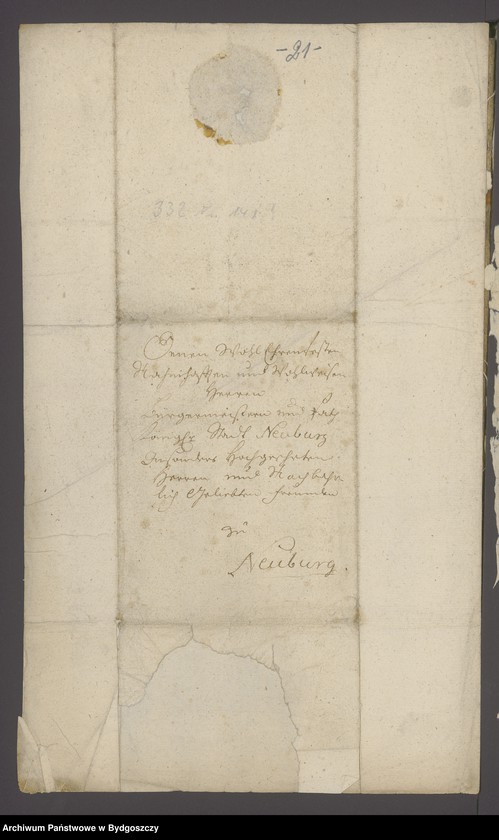 -21-
332
Denen Wohl Ehrenvesten
Nahmhafften und Wohlweisen
Herren
Bürgermeistern und Rath
Königl. Stadt Neuburg
Insonders Hochgeehrten
Herren und Nachbahr
lich Geliebten Freunden
zu
Neuburg.
Archiwum Państwowe w Bydgoszczy